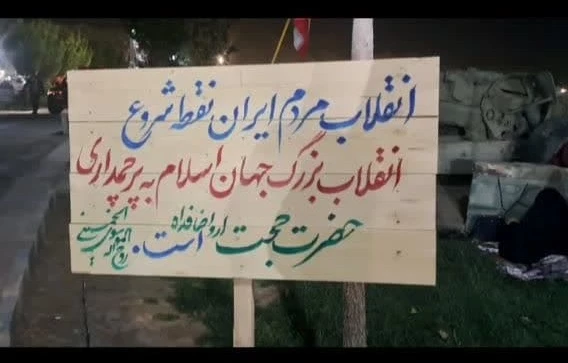 انقلاب مردم ایران نقطه شروع
انقلاب بزرگ جهان اسلام به پرچمداری
حضرت حجت ارواحنافداه است.
روح الله الموسوی الخمینی